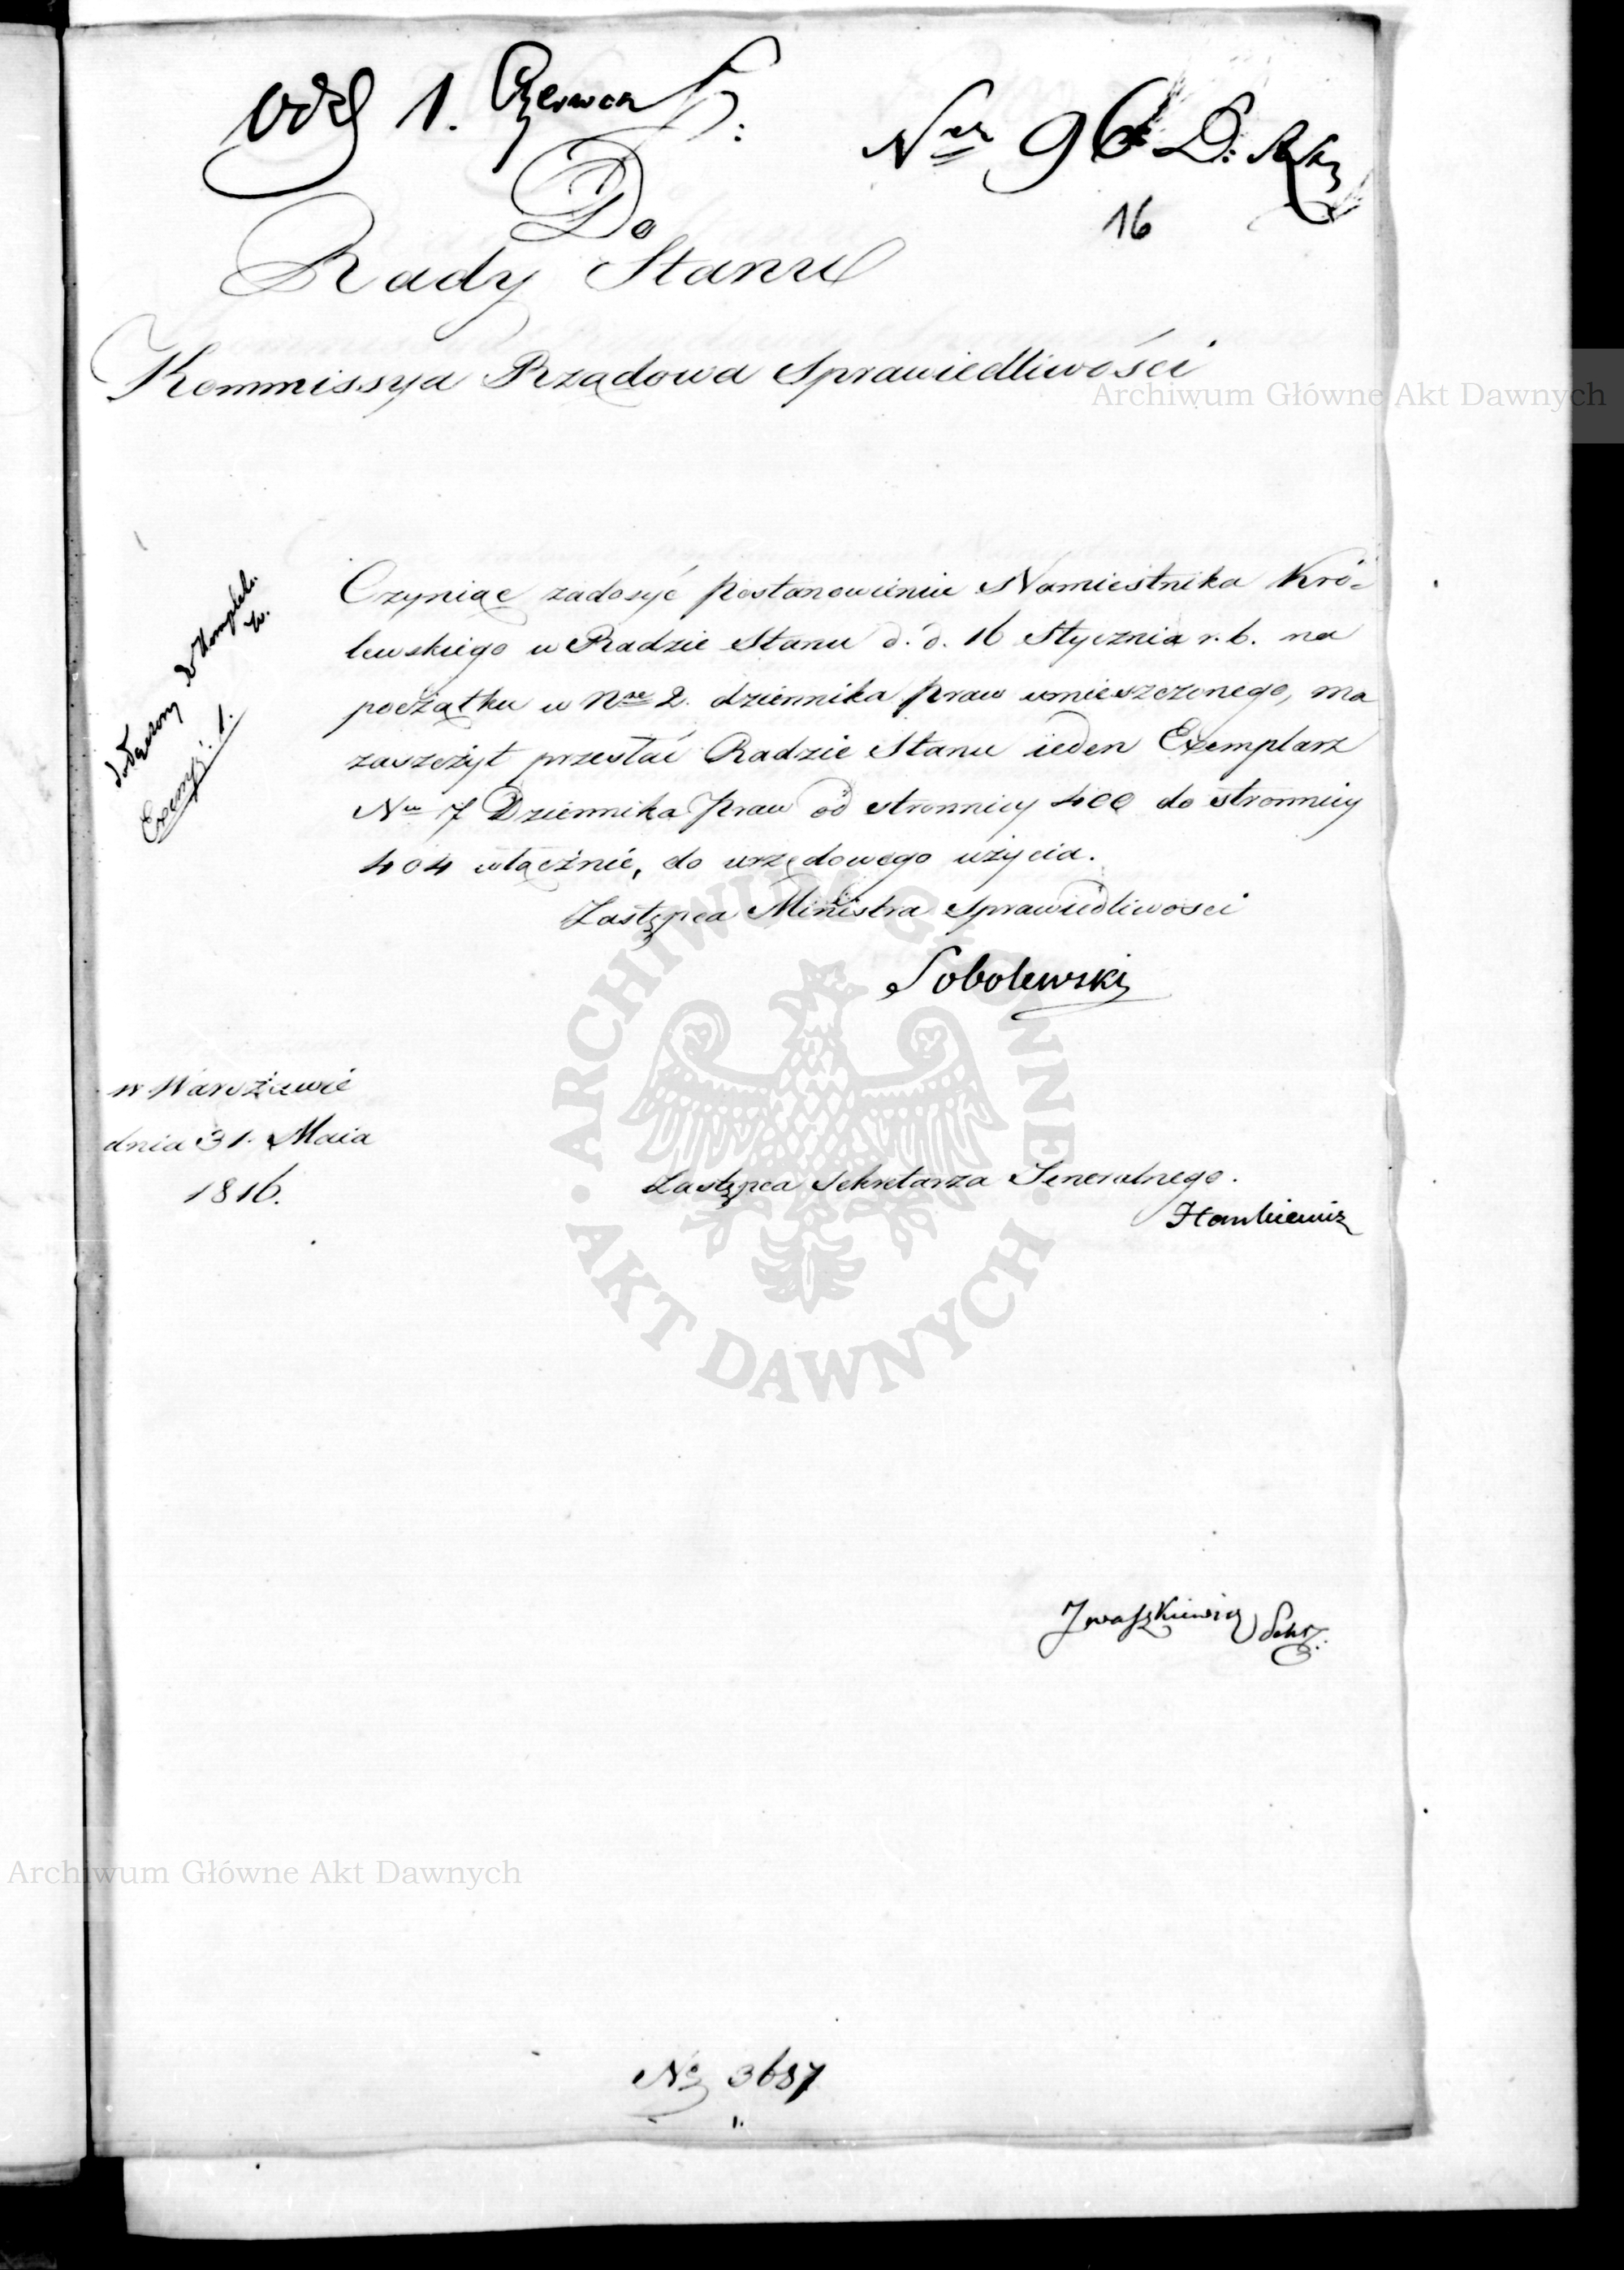 odd 1. Czerwca
Nrr 96 D:
16
Do
Rady Stanu
Kommissya Rządowa Sprawiedliwości
Archiwum Główne Akt Dawnych
dołączony do Komplet.
Exempl: 1.
Czyniąc zadosyć postanowieniu Namiestnika Kró=
lewskiego w Radzie Stanu d. d. 16 Stycznia r. b. na
początku w Nrze 2. dziennika praw umieszczonego, ma
zaszczyt przesłać Radzie Stanu ieden Exemplarz
Nru 7 Dziennika Praw od stronnicy 400 do stronnicy
404 włącznie, do urzędowego użycia.
Zastępca Ministra Sprawiedliwosci
Sobolewski
w Warszawie
dnia 31. Maia
1816.
Zastępca Sekretarza Jeneralnego.
Hankiewicz
ARCHIWUM GŁÓWNE AKT DAWNYCH
Iwaszkiewicz Sekr:
Archiwum Główne Akt Dawnych
No 3687